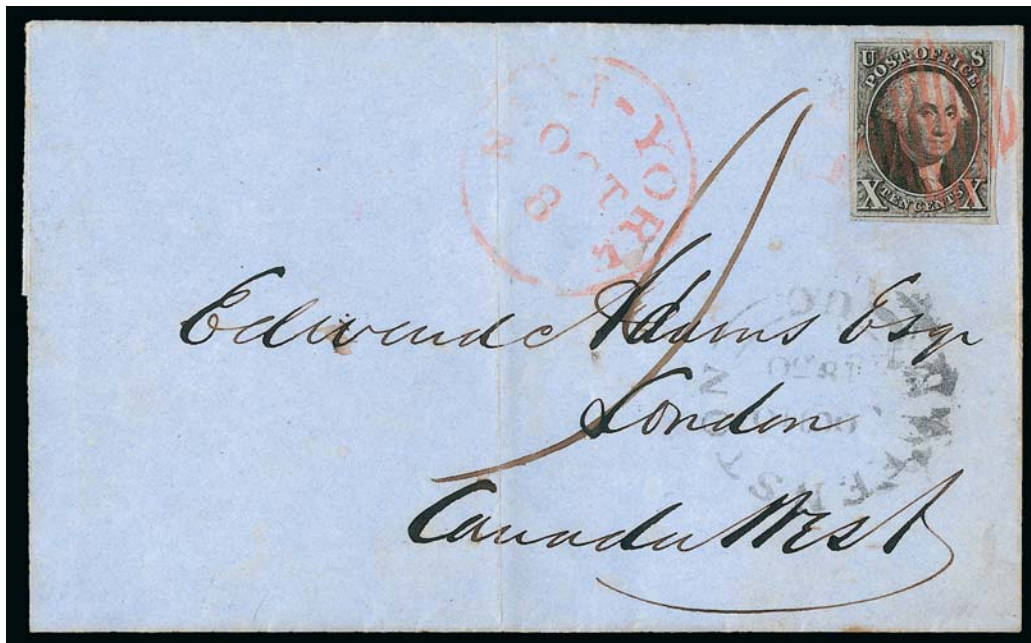 U S
POST OFFICE
X TEN CENTS X
NEW-YORK
OCT
8
Edward Adams Esqr
London
Canada West